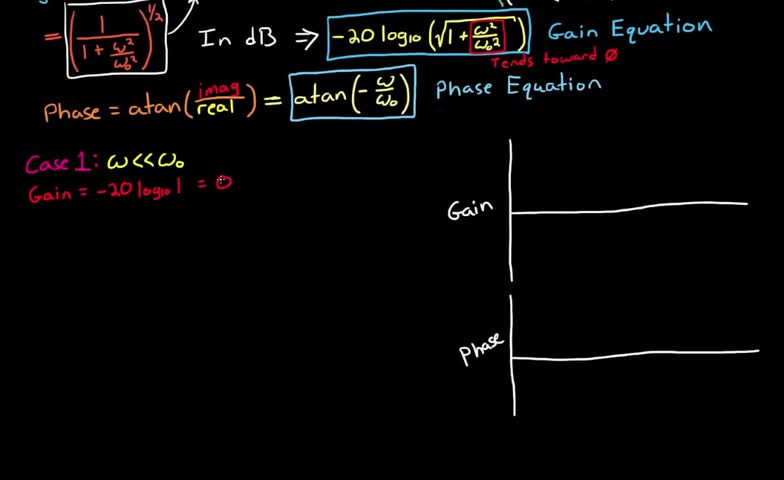 = (1 / (1 + ω²/ω₀²))^1/2 In dB ⇒ -20 log₁₀ (√(1 + ω²/ω₀²)) Gain Equation
Tends toward Ø
Phase = atan(imag/real) = atan(-ω/ω₀) Phase Equation
Case 1: ω << ω₀
Gain = -20 log₁₀ 1 = 0
Gain
Phase